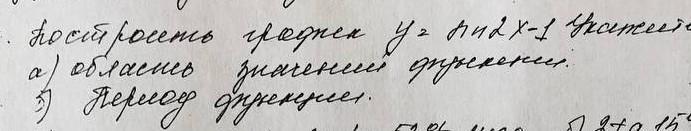 Построить график y = sin2x-1 Укажите
а) область значений функции.
б) Период функции.